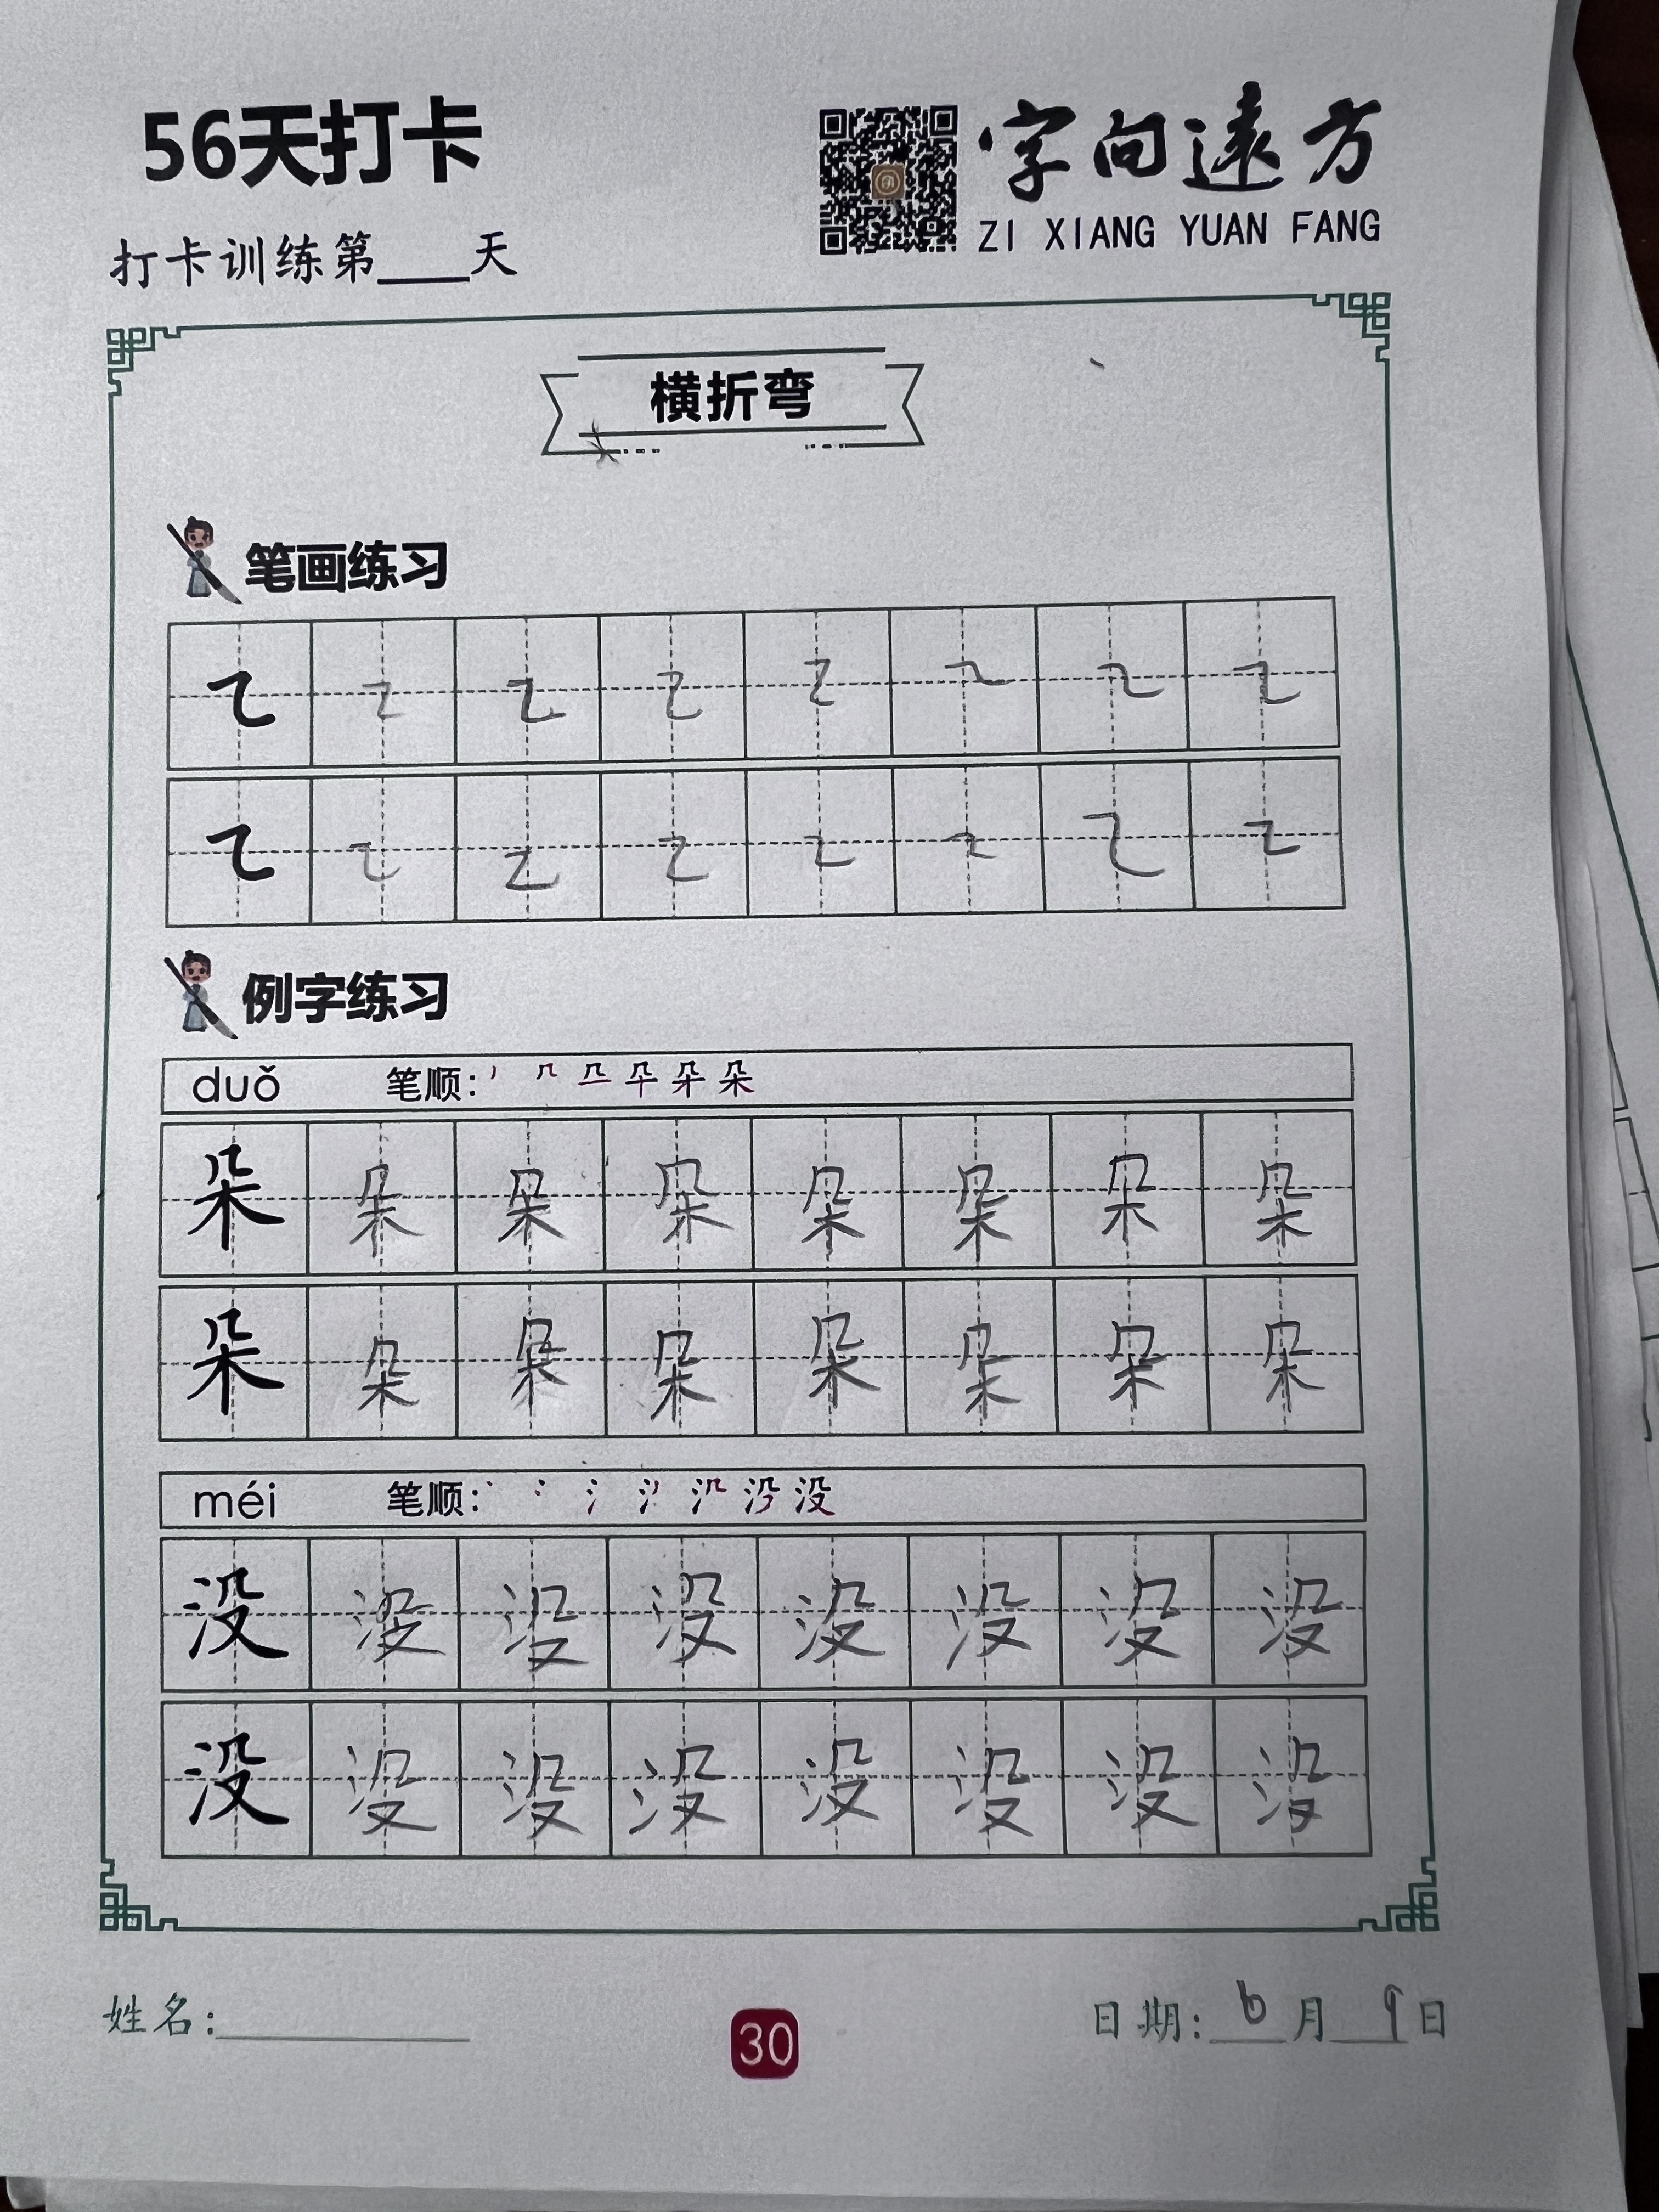 56天打卡
字向遠方
ZI XIANG YUAN FANG
打卡训练第____天
横折弯
笔画练习
㇍ ㇍ ㇍ ㇍ ㇍ ㇍ ㇍ ㇍
㇍ ㇍ ㇍ ㇍ ㇍ ㇍ ㇍ ㇍
例字练习
duǒ 笔顺:
朵 朵 朵 朵 朵 朵 朵 朵
朵 朵 朵 朵 朵 朵 朵 朵
méi 笔顺:
没 没 没 没 没 没 没 没
没 没 没 没 没 没 没 没
姓名:
30
日期: 6 月 9 日